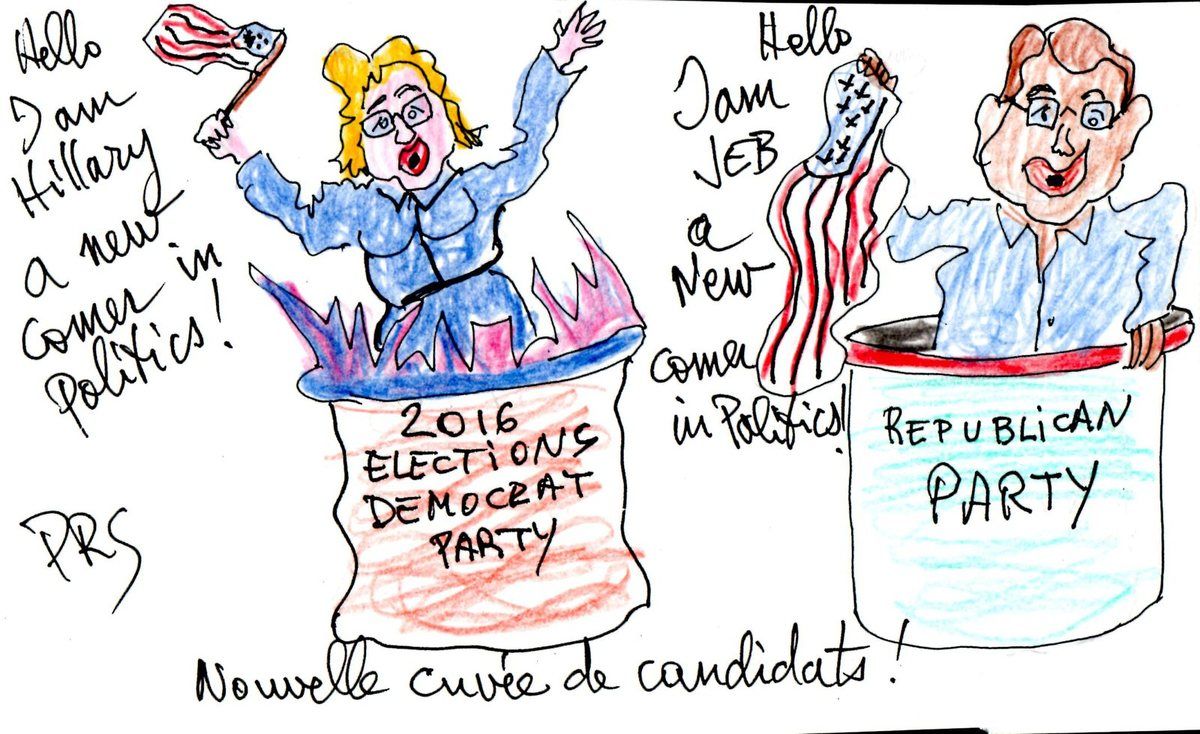 Hello
I am
Hillary
a new
comer in
Politics!
Hello
I am
JEB
a
New
comer
in Politics!
2016
ELECTIONS
DEMOCRAT
PARTY
REPUBLICAN
PARTY
PRS
Nouvelle cuvée de candidats!